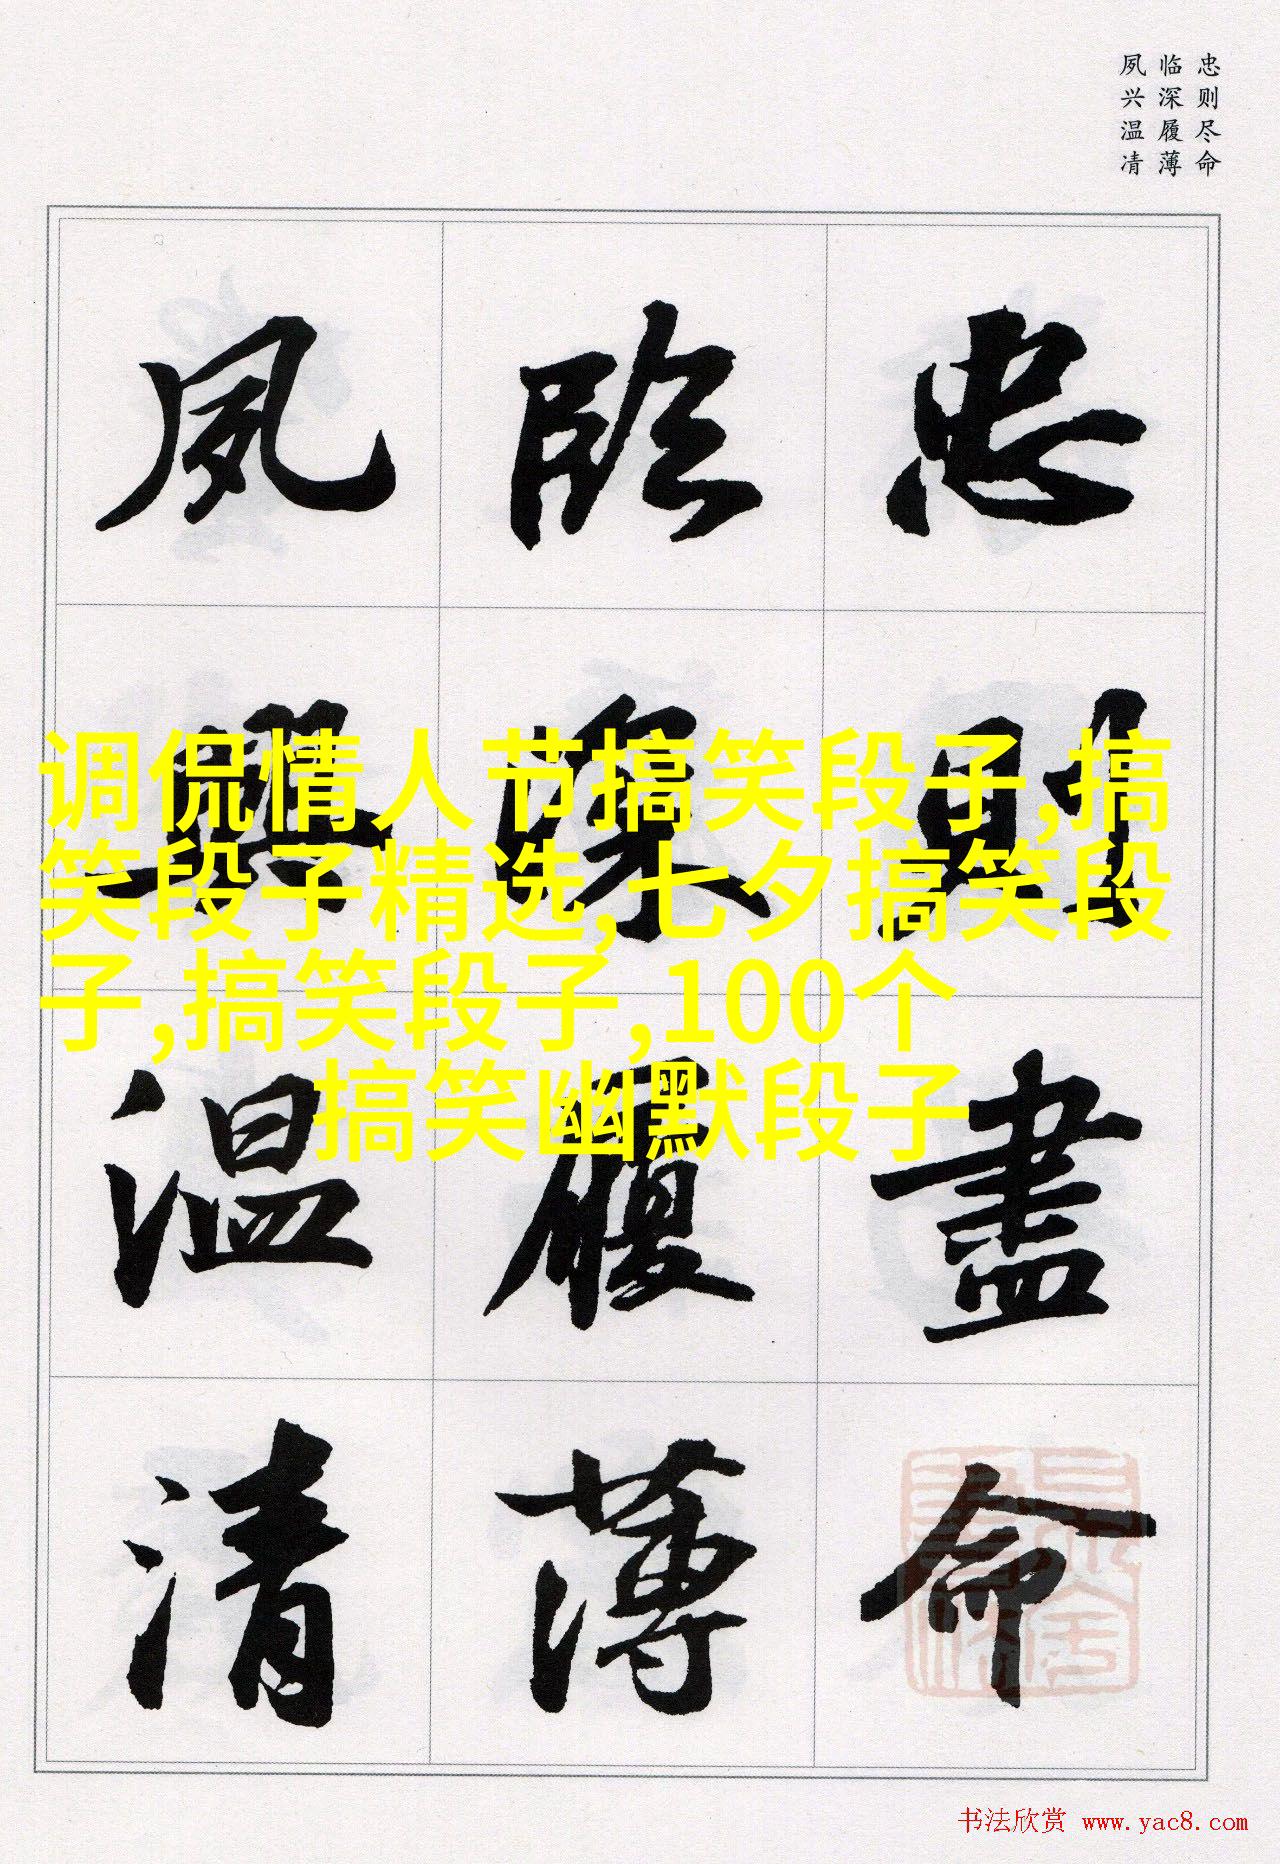 忠则尽命
临深履薄
夙兴温凊
忠則盡命
臨深履薄
夙興温清
调侃情人节搞笑段子,搞
笑段子精选,七夕搞笑段
子,搞笑段子,100个
搞笑幽默段子
书法欣赏 www.yac8.com